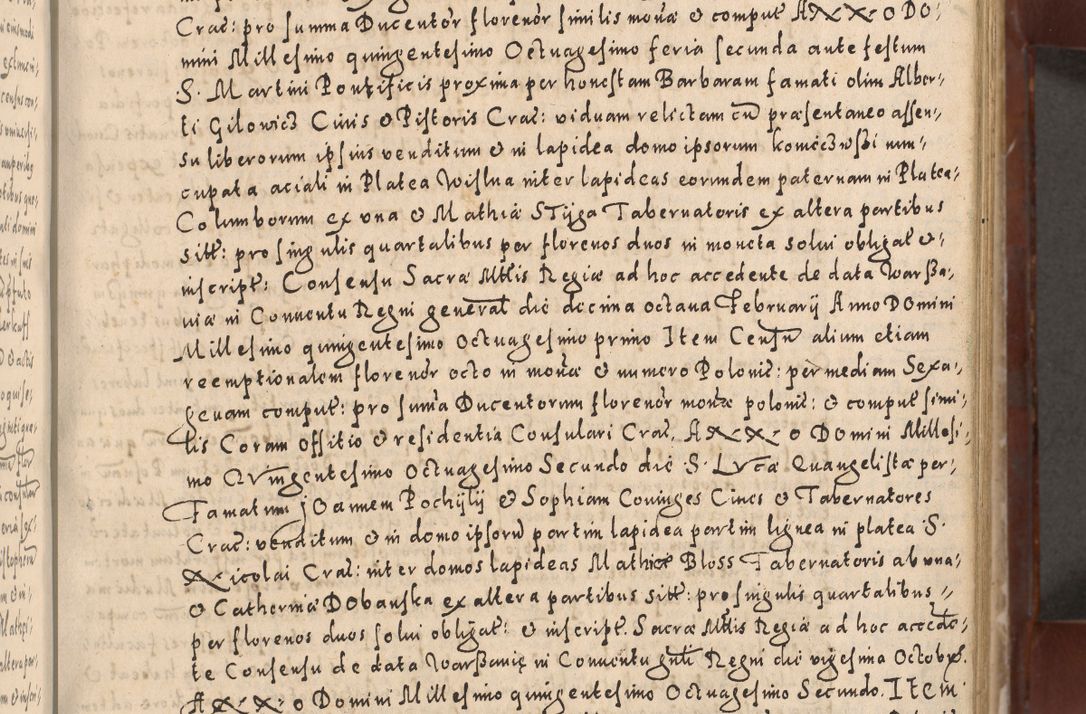 Crac: pro summa Ducentor florenor similis mona & comput ANNO DO:
mini Millesimo quingentesimo Octuagesimo feria secunda ante festum
S. Martini Pontificis proxima per honestam Barbaram famati olim Alber-
ti Gilowicz Ciuis & Pistoris Crac: viduam relictam cu præsentaneo assen:
su liberorum ipsius venditum & in lapidea domo ipsorum nun:
cupata aciali in Platea Wislna inter lapideas eorundem paternam in Platea:
Columborum ex vna & Mathiæ Stijga Tabernatoris ex altera partibus
sitt: pro singulis quartalibus per florenos duos in moneta solui obligat &:
inscript: Consensu Sacræ Mttis Regiæ ad hoc accedente de data Warßa:
uiæ in Conuentu Regni general die decima octaua Februarij Anno Domini
Millesimo quingentesimo Octuagesimo primo Item Censu alium etiam
reemptionalem florenor octo in mona & numero Polonic: per mediam Sexa:
genam comput: pro suma Ducentorum florenor mona polonic: & comput simi:
lis Coram Offitio & residentia Consulari Crac. ANNO Domini Millesi:
mo Quingentesimo Octuagesimo Secundo die S. Lucæ Euangelistæ per:
Famatum Joannem Pochylij & Sophiam Coniuges Ciues & Tabernatores
Crac: venditum & in domo ipsoru partim lapidea partim lignea in platea S.
Nicolai Crac: inter domos lapideas Mathiæ Bloss Tabernatoris ab vna:
& Catherinæ Dobanska ex altera partibus sitt: pro singulis quartalibus
per florenos duos solui obligat: & inscript. Sacræ Mttis Regiæ ad hoc accede:
te Consensu de data Warßauię in Conuentu gnli Regni die vigesima Octobr.
ANNO Domini Millesimo quingentesimo Octuagesimo Secundo. Item